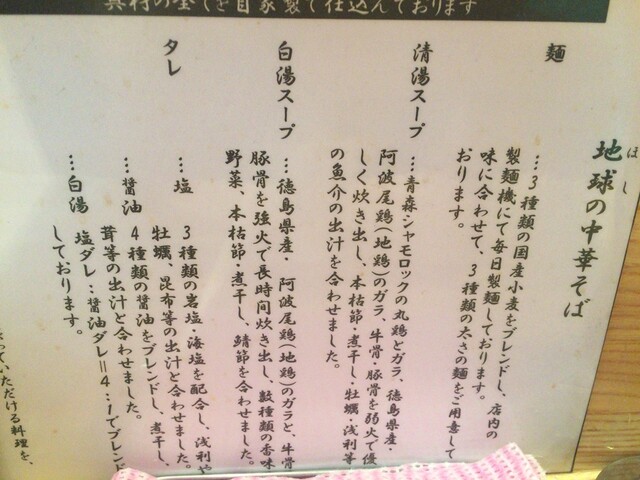 具材の全てを自家製で仕込んでおります
地球の中華そば
ほし
麺
…3種類の国産小麦をブレンドし、店内の
製麺機にて毎日製麺しております。
味に合わせて、3種類の太さの麺をご用意して
おります。
清湯スープ
…青森シャモロックの丸鶏とガラ、徳島県産・
阿波尾鶏(地鶏)のガラ、牛骨・豚骨を弱火で優
しく炊き出し、本枯節・煮干し・牡蠣・浅利等
の魚介の出汁を合わせました。
白湯スープ
…徳島県産・阿波尾鶏(地鶏)のガラと、牛骨
豚骨を強火で長時間炊き出し、数種類の香味
野菜、本枯節・煮干し、鯖節を合わせました。
タレ
…塩 3種類の岩塩・海塩を配合し、浅利や
牡蠣、昆布等の出汁と合わせました。
…醤油 4種類の醤油をブレンドし、煮干し、
茸等の出汁と合わせました。
…白湯 塩ダレ:醤油ダレ=4:1でブレンド
しております。
っていただける料理を、